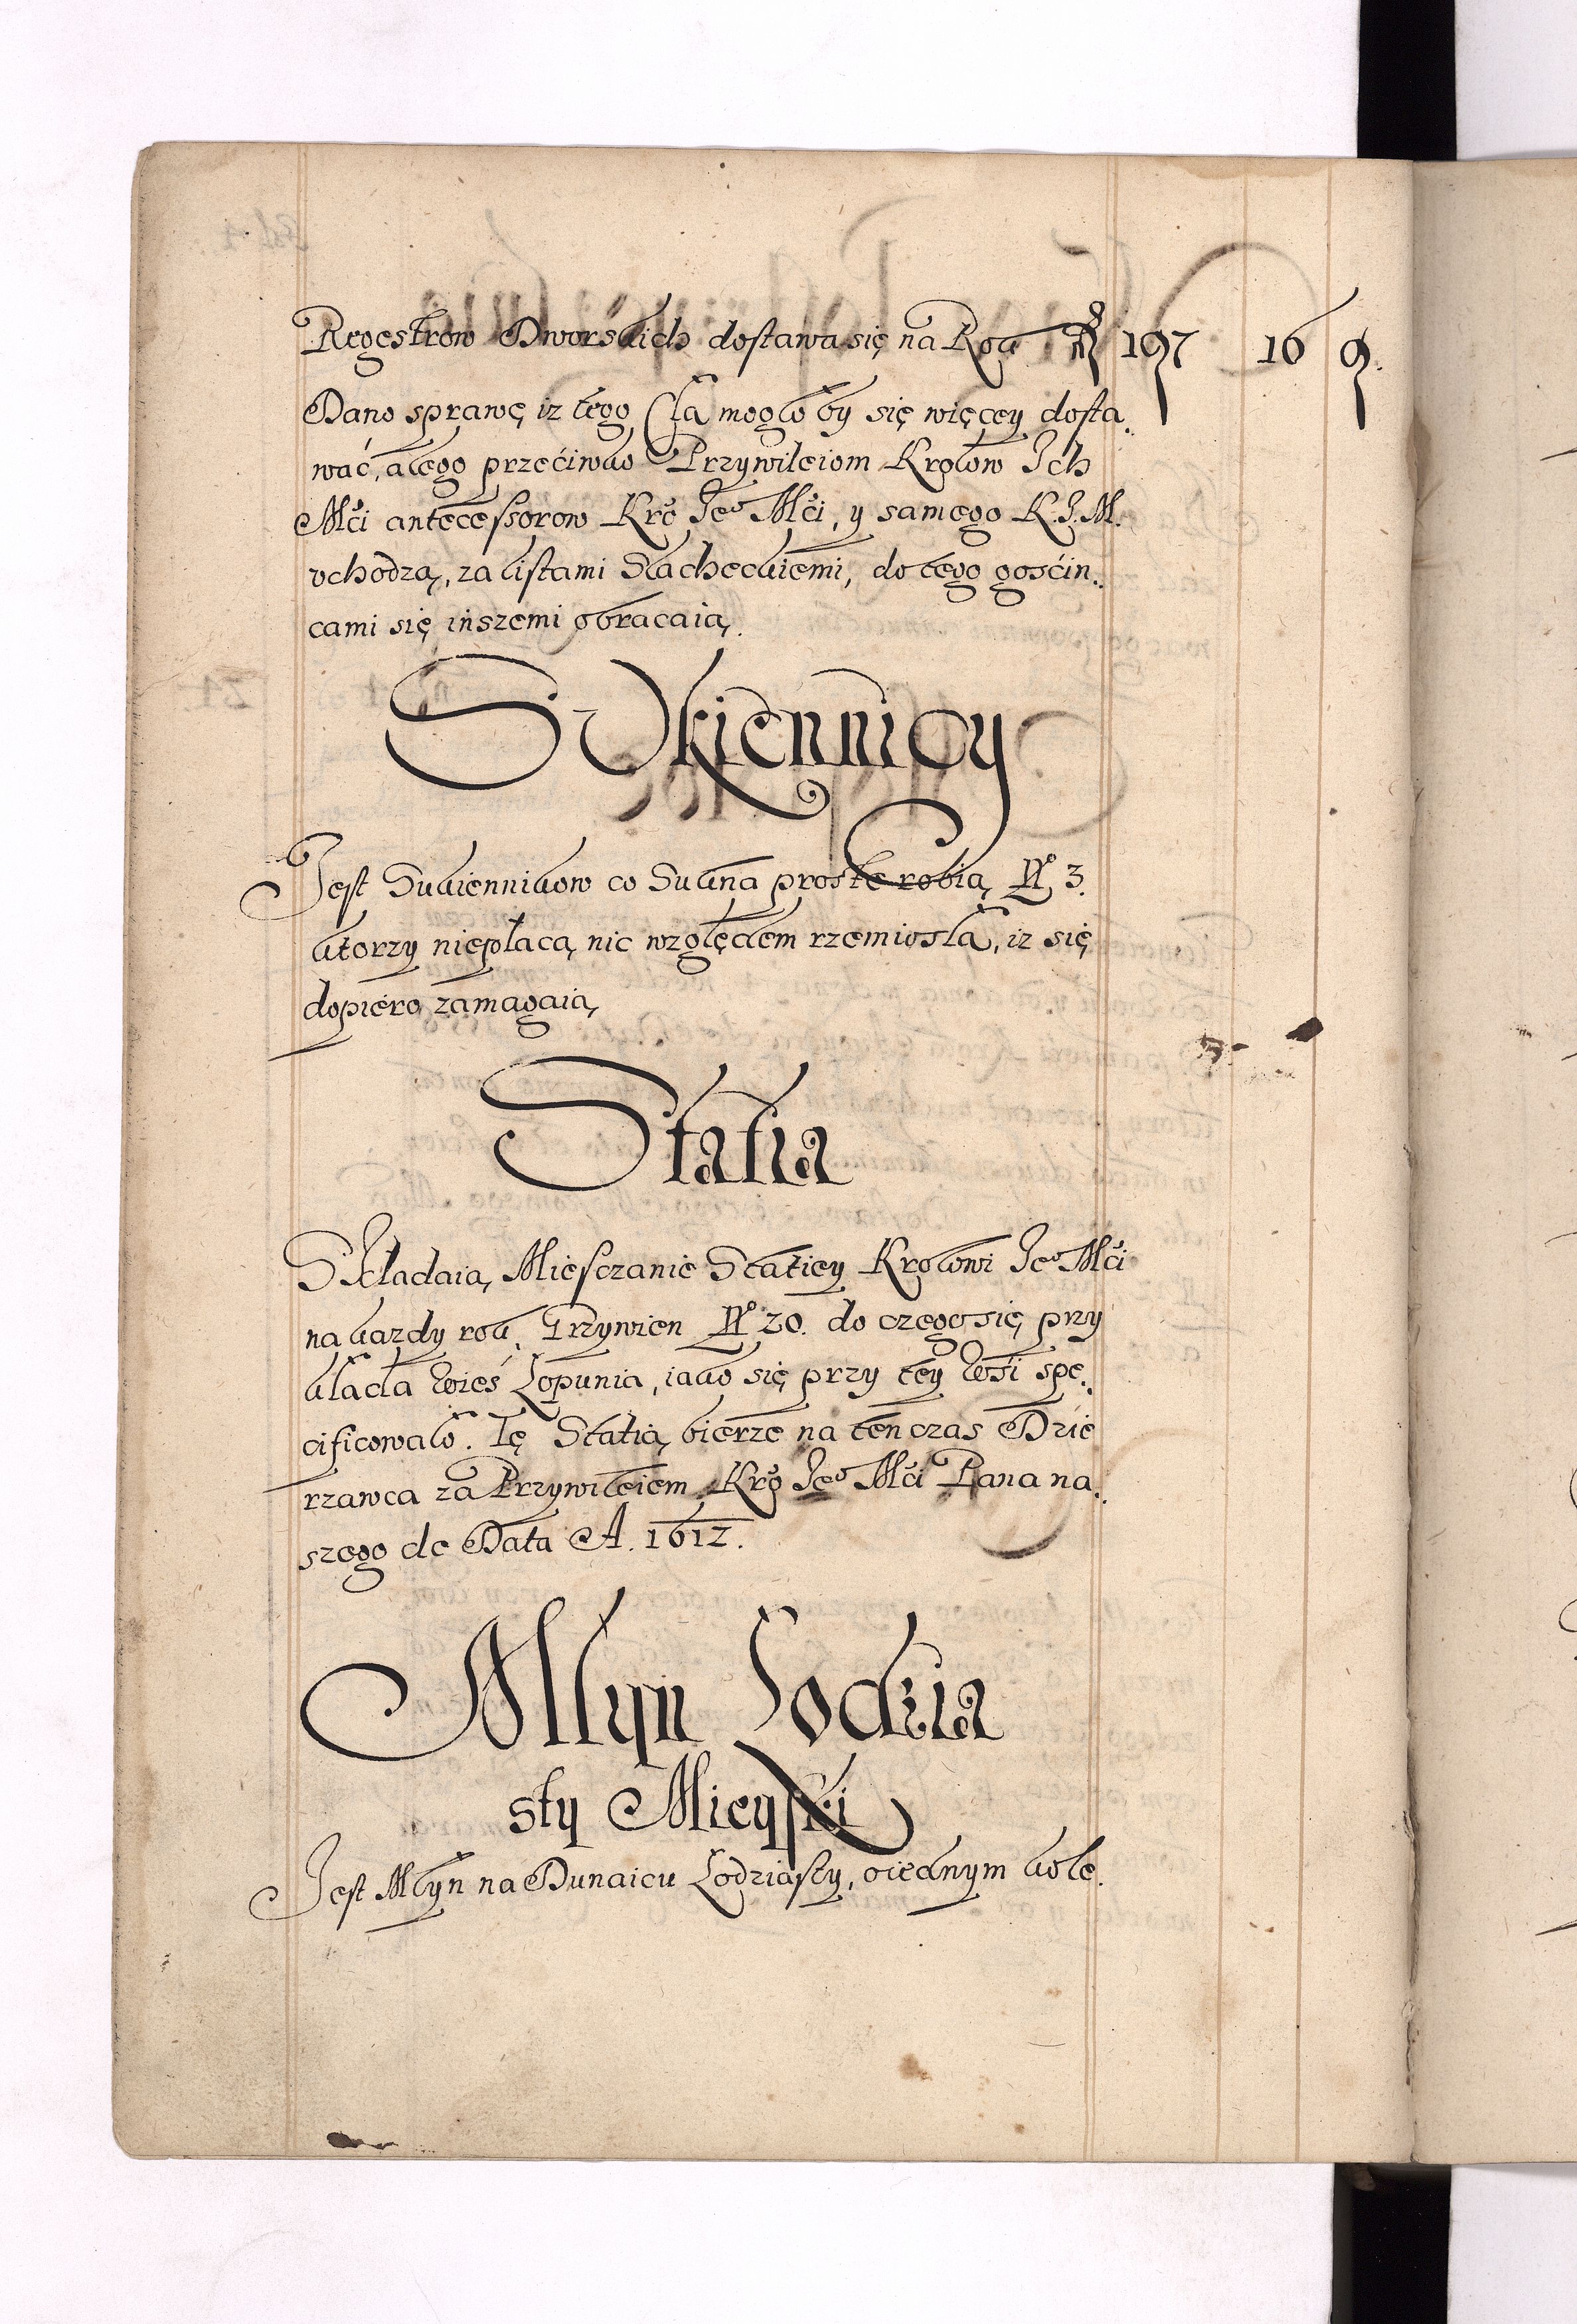 Regestrow Dworskich dostawa się na Rok fl 197 16 9.
Dano sprawę iz tego Cła mogło by się więcey dosta
wać, ale go przećiwko Przywileiom Krolow Ich
Mći antecessorow Kro Ieº Mći, y samego K. I. M.
vchodzą, za listami Slacheckiemi, do tego gośćin
cami się inszemi obracaią.
SVkiennicy
Iest Sukiennikow co Sukna proste robią, Nº 3.
ktorzy niepłacą nic względem rzemiosła, iz się
dopiero zamagaią
Statia
Składaią Miesczanie Statiey Krolowi Ieº Mći
na kazdy rok, Grzywien Nº 20. do czego się przy
kłada Wieś Łopunia, iako się przy tey Wśi spe
cificowało. Tę Statią bierze na ten czas Dzie
rzawca za Przywileiem Kro Ieº Mći Pana na
szego de Data A. 1612.
Młyn Łodzia
sty Mieyski
Iest Młyn na Dunaicu Łodziasty, o iednym kole.